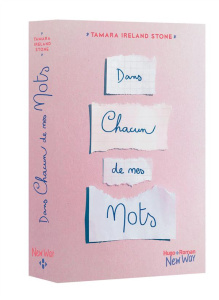 TAMARA IRELAND STONE
Dans
Chacun
de mes
Mots
Hugo Roman
New Way
TAMARA IRELAND
STONE
Dans Chacun de mes Mots
New Way